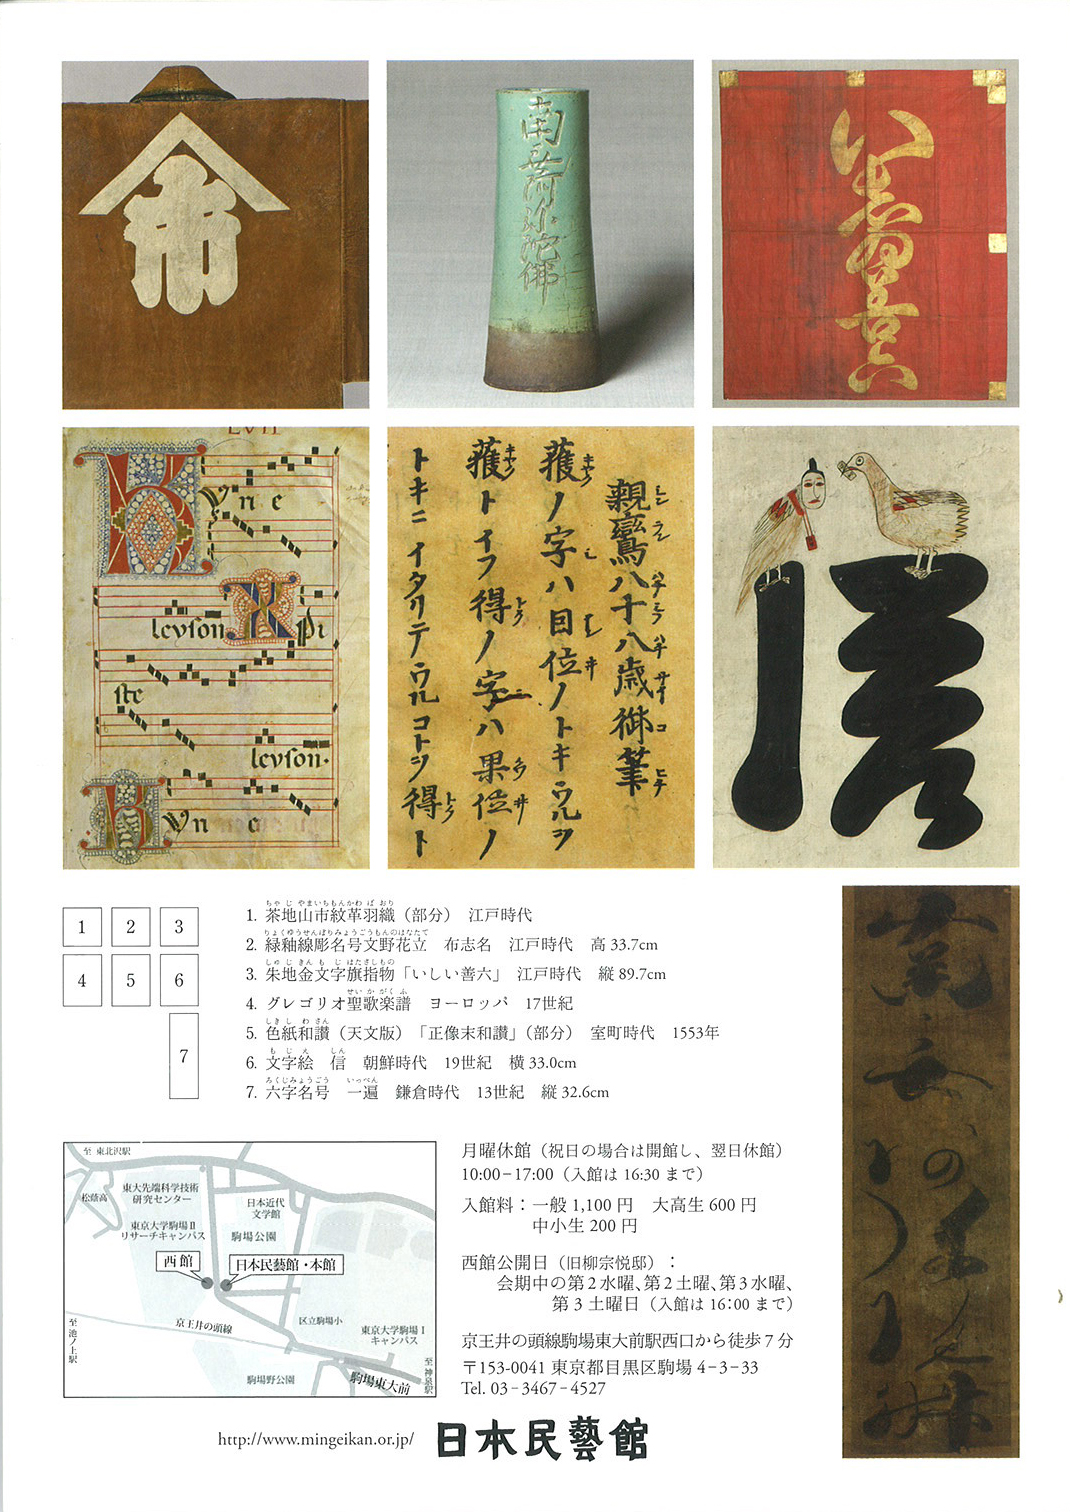 市
南無阿弥陀佛
いしい善六
LVII
Kyrie
leyson Xpi
ste
leyson.
Kyrie
親鸞八十八歳御筆
獲ノ字ハ因位ノトキウルヲ
獲トイフ得ノ字ハ果位ノ
トキニイタリテウルコトヲ得ト
信
1 2 3
4 5 6
7
1. 茶地山市紋革羽織（部分） 江戸時代
2. 緑釉線彫名号文野花立 布志名 江戸時代 高 33.7cm
3. 朱地金文字旗指物「いしい善六」 江戸時代 縦 89.7cm
4. グレゴリオ聖歌楽譜 ヨーロッパ 17世紀
5. 色紙和讃（天文版）「正像末和讃」（部分） 室町時代 1553年
6. 文字絵 信 朝鮮時代 19世紀 横 33.0cm
7. 六字名号 一遍 鎌倉時代 13世紀 縦 32.6cm
至 東北沢駅
松蔭高
東大先端科学技術
研究センター
東京大学駒場Ⅱ
リサーチキャンパス
日本近代
文学館
駒場公園
西館
日本民藝館・本館
京王井の頭線
区立駒場小
東京大学駒場Ⅰ
キャンパス
至 池ノ上駅
至 神泉駅
駒場野公園
駒場東大前
月曜休館（祝日の場合は開館し、翌日休館）
10:00−17:00（入館は 16:30 まで）
入館料：一般 1,100 円 大高生 600 円
中小生 200 円
西館公開日（旧柳宗悦邸）：
会期中の第２水曜、第２土曜、第３水曜、
第３土曜日（入館は 16:00 まで）
京王井の頭線駒場東大前駅西口から徒歩７分
〒153-0041 東京都目黒区駒場 4−3−33
Tel. 03−3467−4527
http://www.mingeikan.or.jp/ 日本民藝館